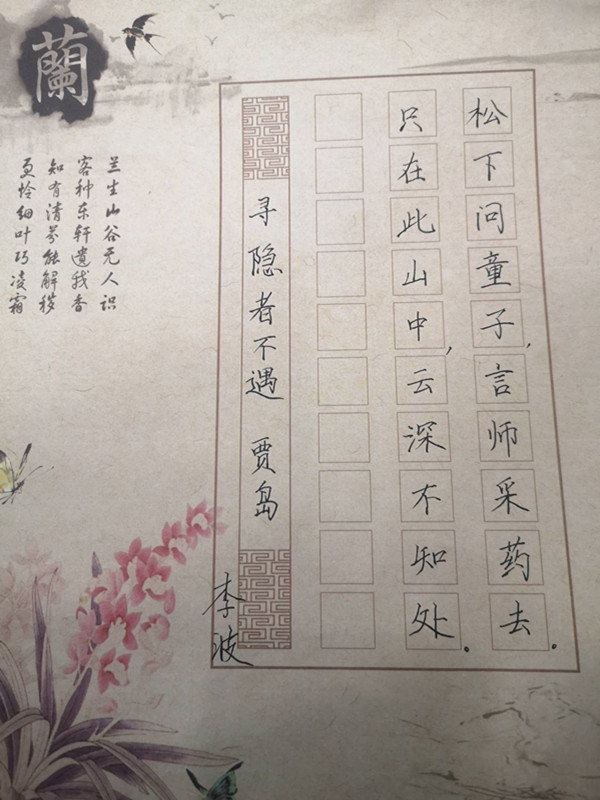 松下问童子，言师采药去。
只在此山中，云深不知处。
寻隐者不遇 贾岛
李波
蘭
兰生山谷无人识
客种东轩遗我香
知有清芬能解秽
更怜细叶巧凌霜